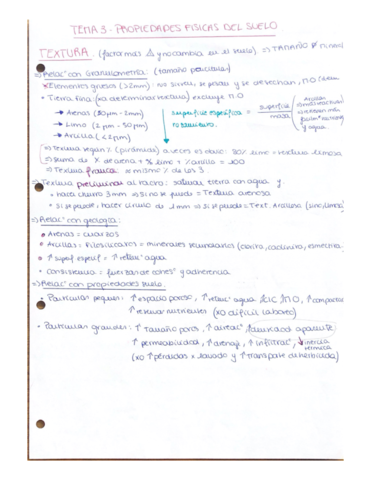 TEMA 3 - PROPIEDADES FISICAS DEL SUELO
TEXTURA: (factor mas Δ y no cambia al el suelo) ⇒ TAMAÑO
⇒ Relacⁿ con Granulometría: (tamaño partículas)
Elementos gruesos (>2mm): no sirven, se pesan y se desechan, M.O
• Tierra fina (no determinar textura) excluye M.O
→ Arenas (50μm - 2mm)
→ Limo (2μm - 50μm)
→ Arcilla (<2μm)
superficie específica = superficie / masa
Arcillas
y agua.
⇒ Textura según % (pirámide) a veces es obvio: 80% limo = textura limosa
⇒ Suma de % de arena + % limo + % arcilla = 100
⇒ Textura franca: = mismo % de los 3
⇒ Textura preliminar al tacto: saturar tierra con agua y:
• hacer churro 3mm ⇒ Si no puedo = Textura arenosa
• Si se puede, hacer círculo de 1mm ⇒ Si se puede = Text. Arcillosa (sino, limosa)
⇒ Relacⁿ con geología:
• Arenas = cuarzos
• Arcillas = Filosilicatos = minerales secundarios (clorita, caolinita, esmectita)
• ↑ superf especif = ↑ retenⁿ agua
• Consistencia = fuerzas de cohesⁿ y adherencia.
⇒ Relacⁿ con propiedades suelo:
• Partículas pequeñas: ↑ espacio poroso, ↑ retenⁿ agua, ↑CIC, ↑M.O, ↑ compactac
↑ reserva nutrientes (xo difícil laboreo)
• Partículas grandes: ↑ tamaño poros, ↑ aireacⁿ, ↑ densidad aparente
↑ permeabilidad, ↑ drenaje, ↑ infiltracⁿ, ↓ inercia térmica
(xo ↑ pérdidas x lavado y ↑ transporte de herbicida)